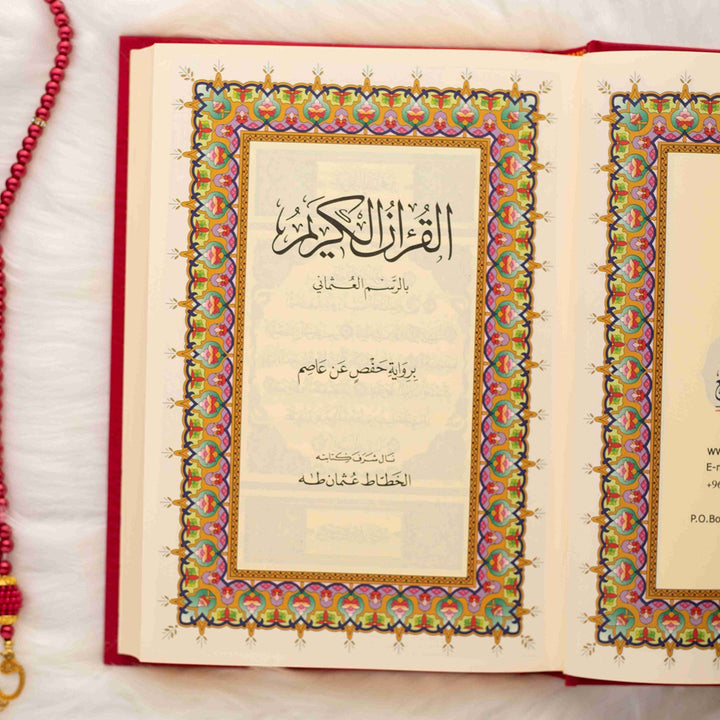 القُرآنُ الكَرِيمُ
بالرَّسْمِ العُثماني
بِرِوَايَةِ حَفْصٍ عَن عَاصِم
نَال شَرَفَ كِتَابَتِه
الخَطّاط عُثمان طٰه
ww
E-m
+96
P.O.Bo